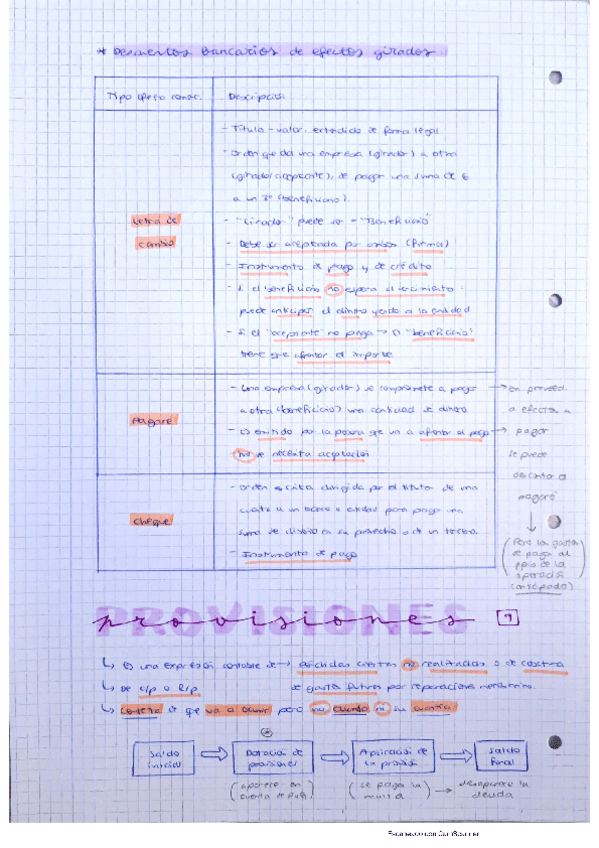 * Descuentos bancarios de efectos girados.
Tipo efecto comer. Descripción
- Título-valor, extendido de forma legal
- Orden que da una empresa (girador) a otra
(girador/aceptante), de pagar una suma de €
a un 3º (beneficiario).
Letra de
cambio
- "Girador" puede ser = "Beneficiario"
- Debe ser aceptada por ambos (firma)
- Instrumento de pago y de crédito
- Si el beneficiario no espera al vencimiento:
puede anticipar el dinero yendo a la entidad
- Si el "aceptante" no paga → El "beneficiario"
tiene que afrontar el importe
Pagaré
- Una empresa (girador) se compromete a pagar
a otra (beneficiario) una cantidad de dinero
- Es emitido por la persona que va a afrontar el pago
- no se necesita aceptación
→ en proveed.
a efectos a
→ pagar
se puede
descontar a
pagaré
↓
(Pero los gastos
se paga al
ppio de la
operación
(anticipado))
Cheque
- Orden escrita dirigida por el titular de una
cuenta a un banco o entidad para pagar una
suma de dinero en su provecho o de un tercero.
- Instrumento de pago
PROVISIONES
provisiones 9
↳ Es una expresión contable de → pérdidas ciertas no realizadas o de cobertura
↳ De c/p o l/p de gastos futuros por reparaciones
↳ Certeza de que va a ocurrir pero no cuándo ni su cuantía
Saldo
inicial
Dotación de
provisiones
Aplicación de
la provisión
Saldo
final
(aparece en
cuenta de PyG)
(se paga la
) → desaparece la
deuda
Escaneado con CamScanner